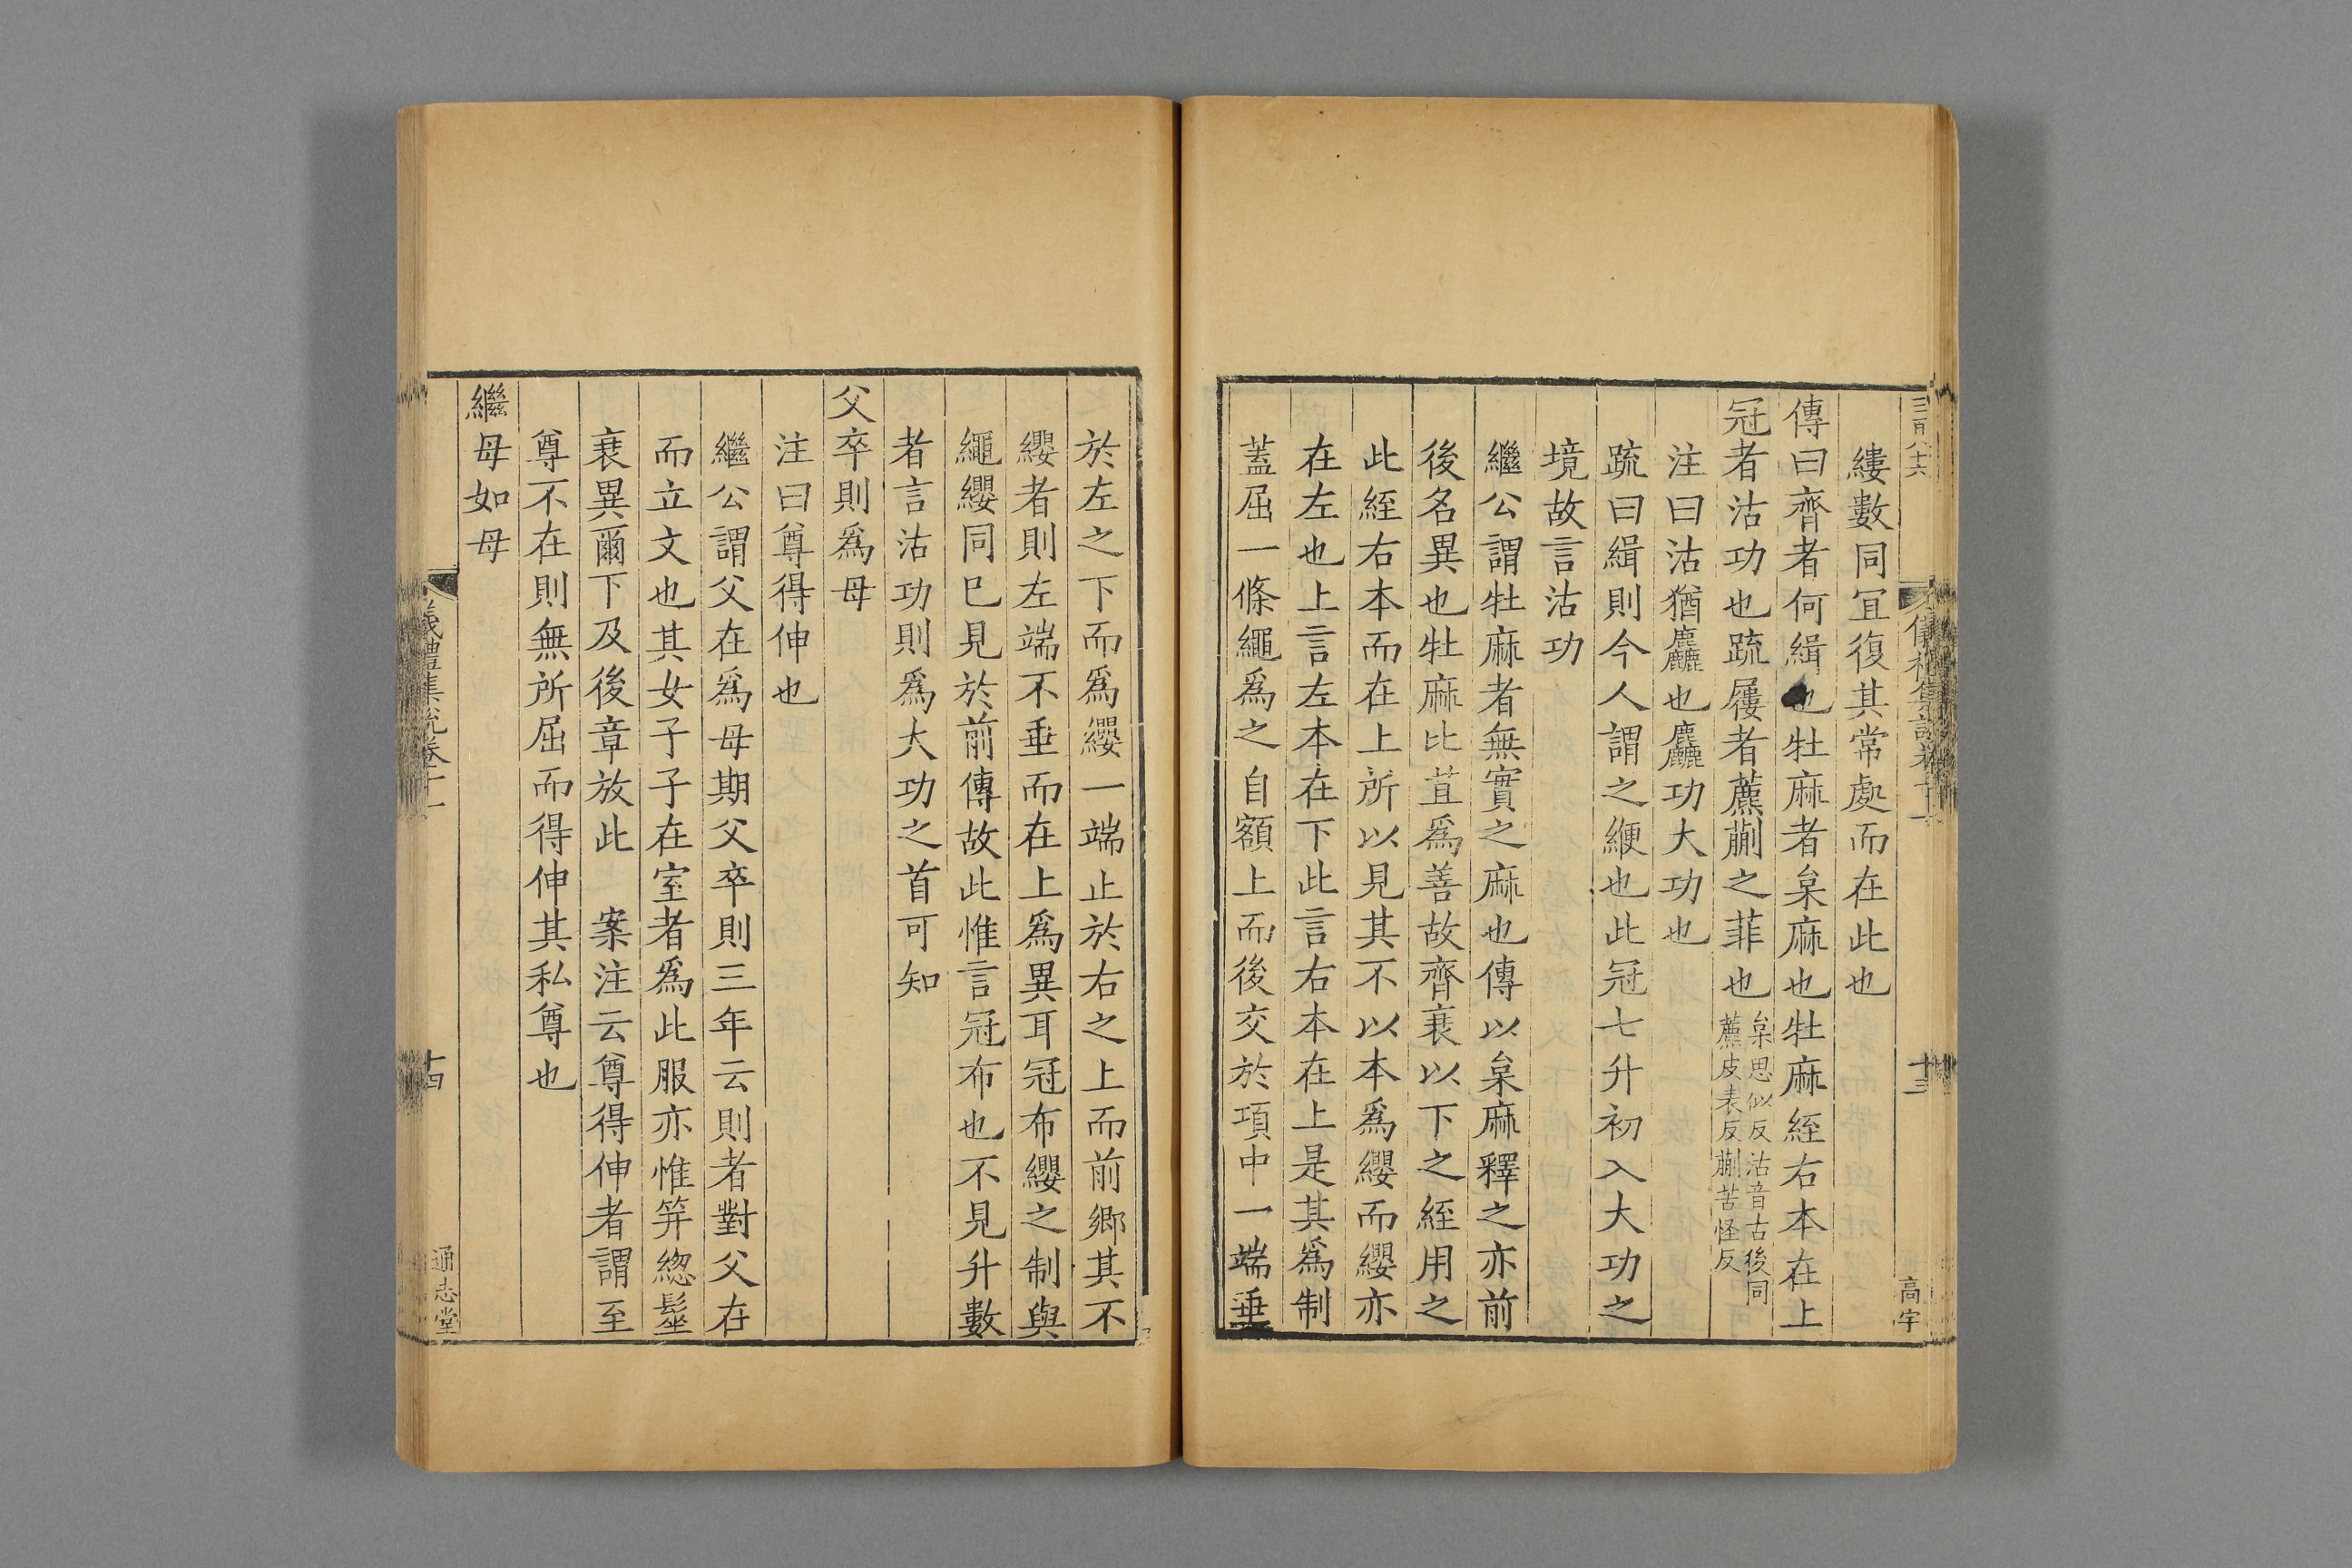 縷數同宜復其常處而在此也
傳曰齊者何緝也牡麻者枲麻也牡麻絰右本在上
冠者沽功也疏屨者藨蒯之菲也 枲思似反沽音古後同
藨皮表反蒯苦怪反
注曰沽猶麤也麤功大功也
疏曰緝則今人謂之緶也此冠七升初入大功之
境故言沽功
繼公謂牡麻者無實之麻也傳以枲麻釋之亦前
後名異也牡麻比苴爲善故齊衰以下之絰用之
此絰右本而在上所以見其不以本爲纓而纓亦
在左也上言左本在下此言右本在上是其爲制
蓋屈一條繩爲之自額上而後交於項中一端垂
高宇
十三
於左之下而爲纓一端止於右之上而前鄉其不
纓者則左端不垂而在上爲異耳冠布纓之制與
繩纓同巳見於前傳故此惟言冠布也不見升數
者言沽功則爲大功之首可知
父卒則爲母
注曰尊得伸也
繼公謂父在爲母期父卒則三年云則者對父在
而立文也其女子子在室者爲此服亦惟笄緫髽
衰異爾下及後章放此 案注云尊得伸者謂至
尊不在則無所屈而得伸其私尊也
繼母如母
儀禮集說卷十一
十四
通志堂